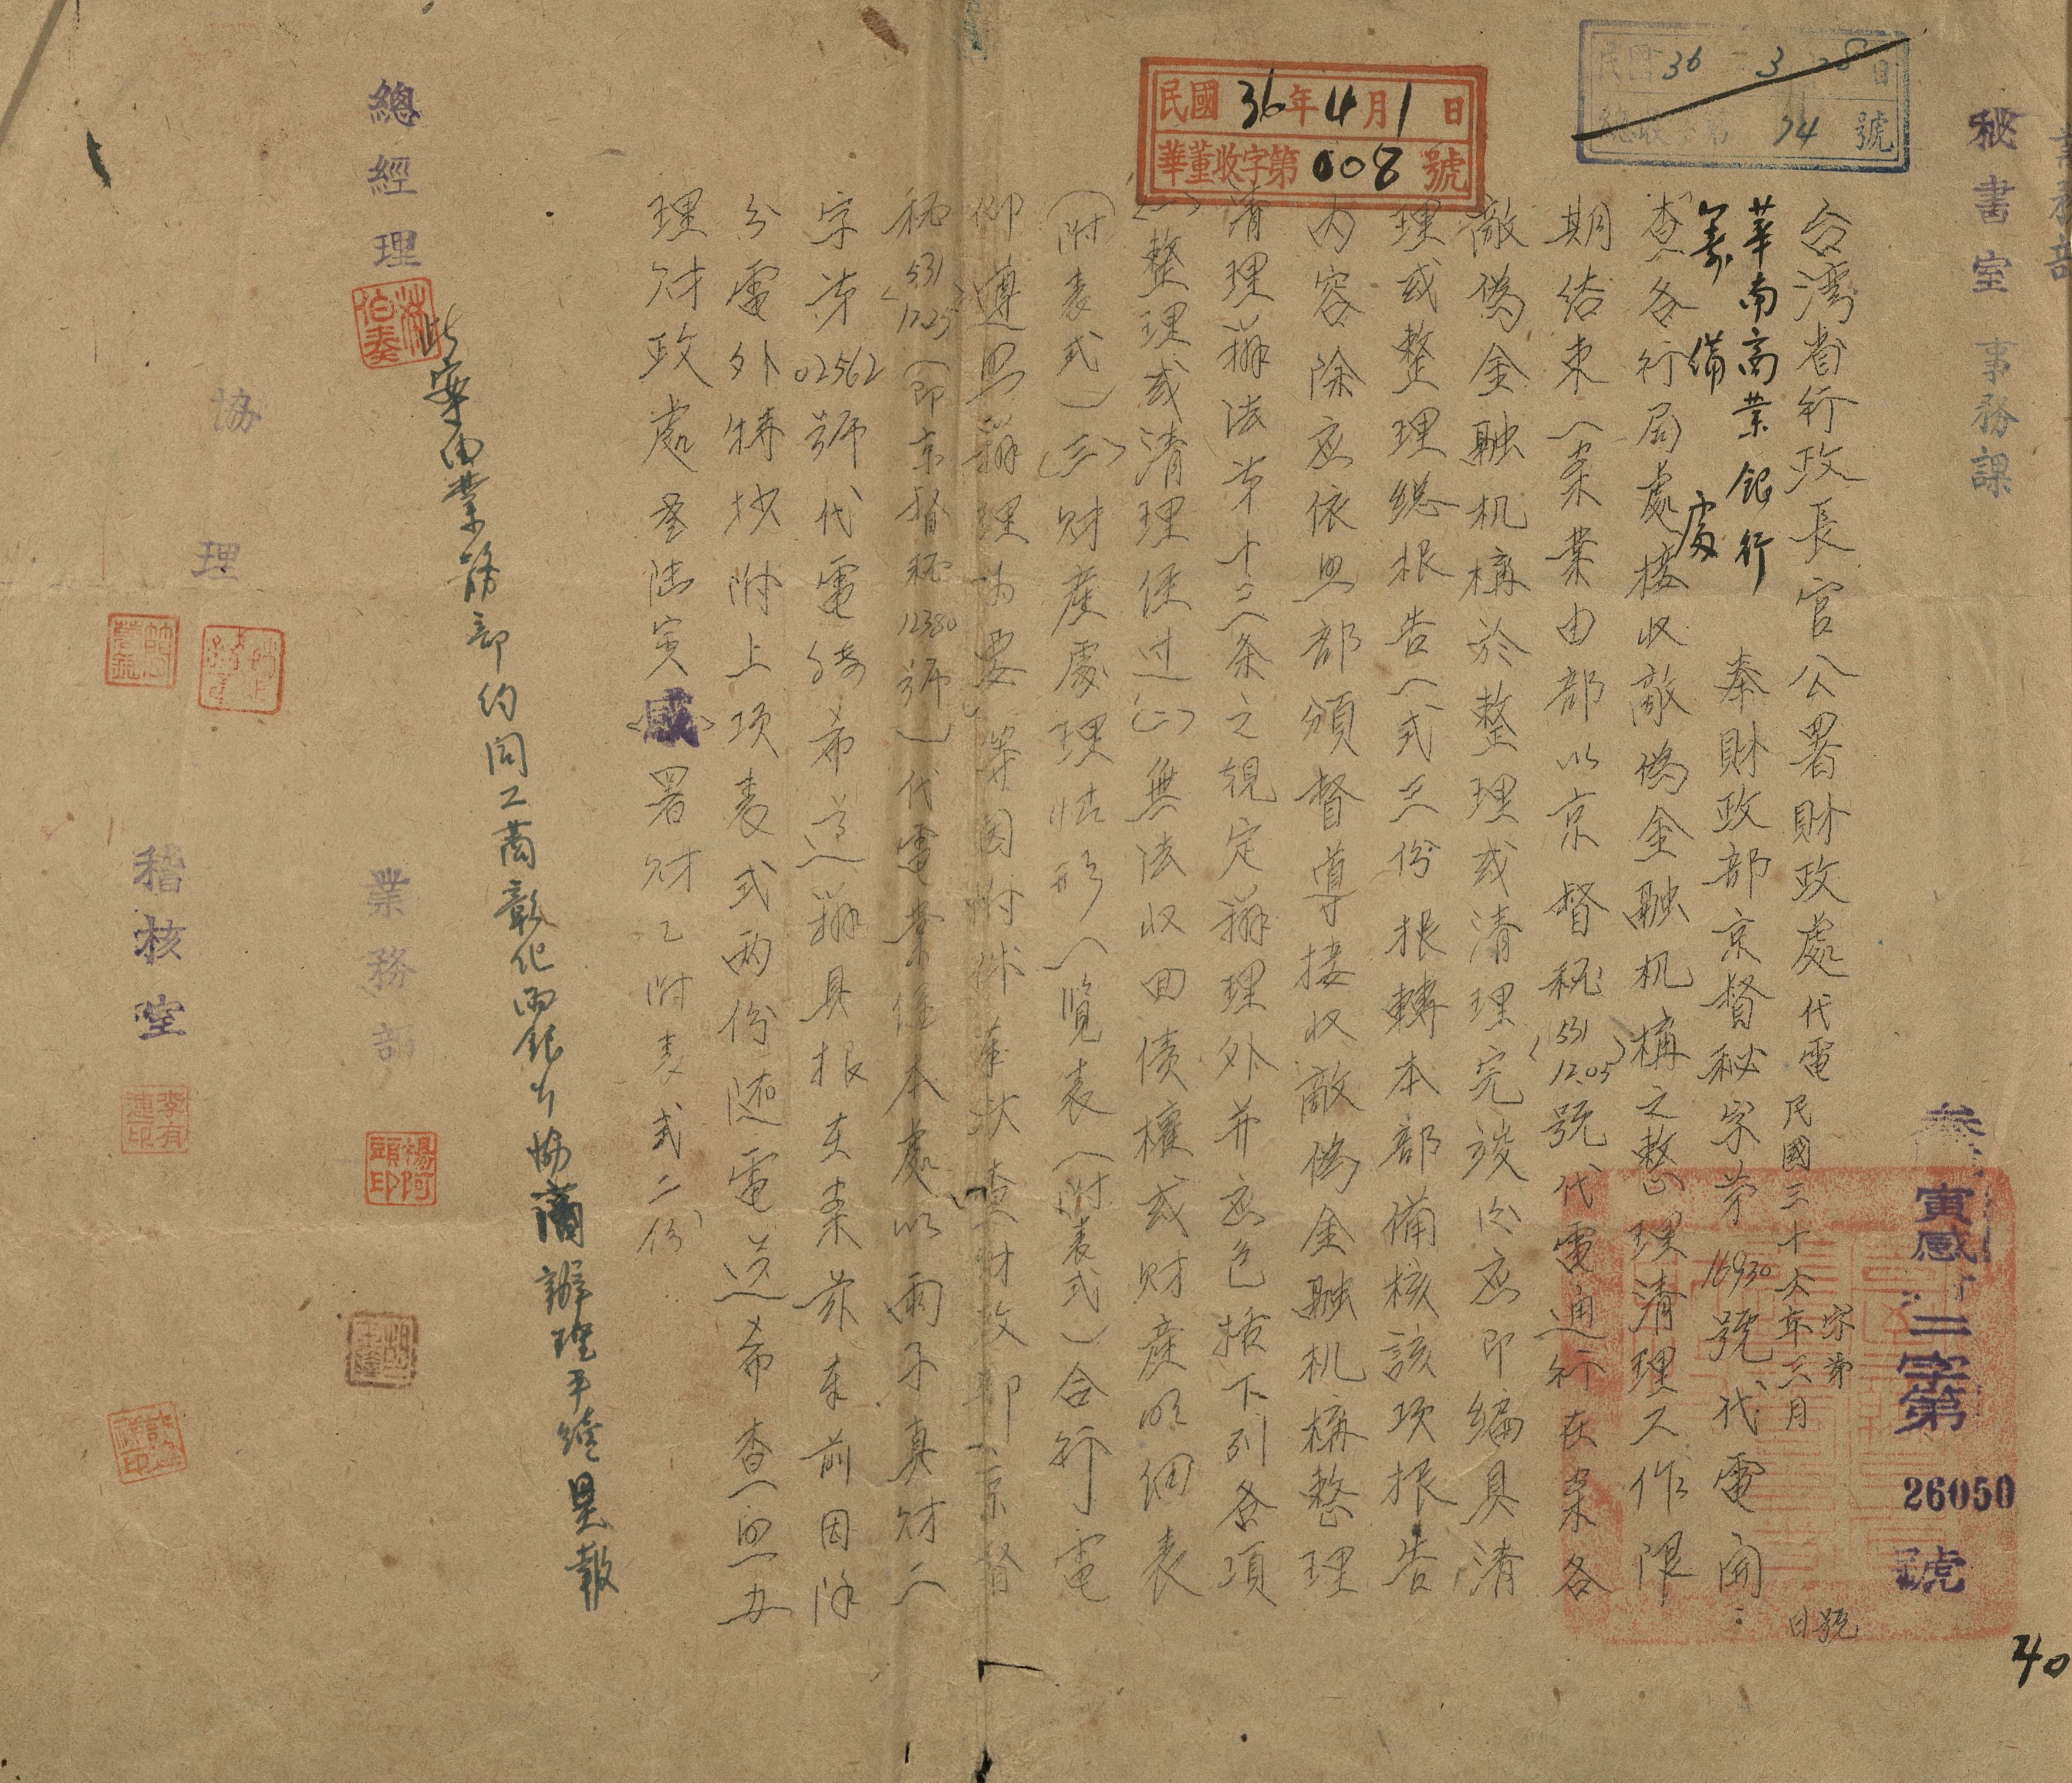 業務部
秘書室 事務課
民國36年3月28日
總收字第74號
民國36年4月1日
華董收字第008號
寅感二字第26050號
台灣省行政長官公署財政處代電 民國三十六年三月 日
字第 號
華南商業銀行
籌備處
奉財政部京督秘字第16930號代電開:
「查各行局處接收敵偽金融机構之整理清理工作限
期結束一案業由部以京督秘(531 12.05)號代電通行在案各
敵偽金融机構於整理或清理完竣后应即編具清
理或整理總报告一式三份报轉本部備核該项报告
内容除应依照部頒督導接收敵偽金融机構整理
清理辦法第十二條之規定辦理外并应包括下列各項
(一)整理或清理経过(二)無法收回債權或財產明細表
(附表式)(三)財產處理情形一覽表(附表式)合行電
仰遵照辦理為要」等因附件奉此查財政部京督
秘(531 12.25)(即京督秘12380號)代電業経本處以丽子真財二
字第02562號代電轉希遵辦具报在案兹奉前因除
分電外特抄附上項表式兩份隨電送希查照办
理財政處 寅(感)署財乙附表式二份
此案由業務部約同工商彰化兩銀行協商辦理手續具報
總經理
協理
業務部
稽核室
楊阿頭印
李有連印
40